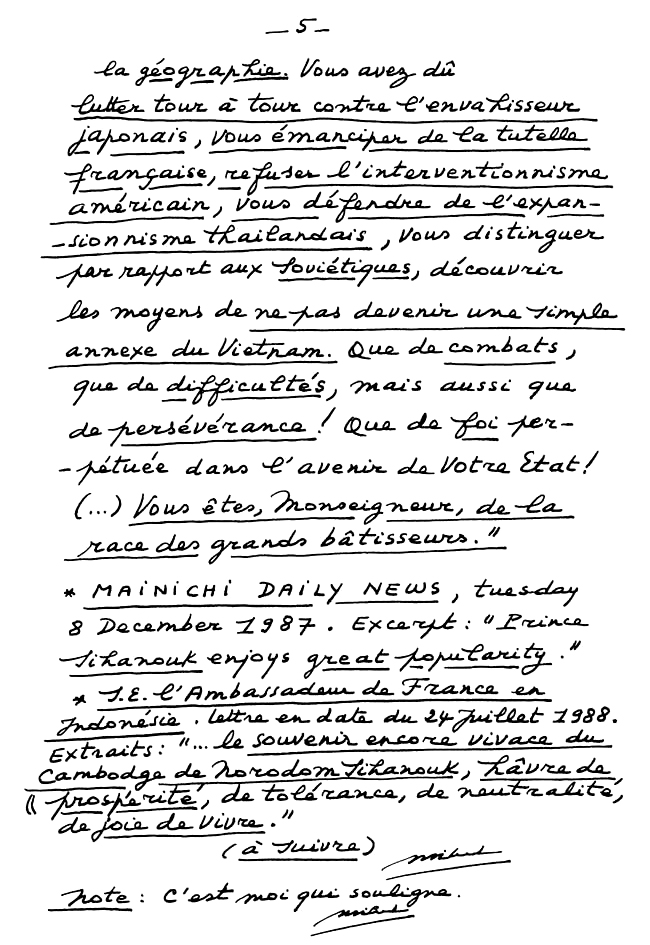 — 5 —
la géographie. Vous avez dû
lutter tour à tour contre l'envahisseur
japonais, vous émanciper de la tutelle
française, refuser l'interventionnisme
américain, vous défendre de l'expan-
-sionnisme thaïlandais, vous distinguer
par rapport aux Soviétiques, découvrir
les moyens de ne pas devenir une simple
annexe du Vietnam. Que de combats,
que de difficultés, mais aussi que
de persévérance ! Que de foi per-
-pétuée dans l'avenir de Votre Etat !
(...) Vous êtes, Monseigneur, de la
race des grands bâtisseurs."
* MAINICHI DAILY NEWS, tuesday
8 December 1987. Excerpt : "Prince
Sihanouk enjoys great popularity."
* S.E. l'Ambassadeur de France en
Indonésie. lettre en date du 24 Juillet 1988.
Extraits : "... le souvenir encore vivace du
Cambodge de Norodom Sihanouk, hâvre de
(( prospérité, de tolérance, de neutralité,
de joie de vivre."
(à suivre)
Note : C'est moi qui souligne.